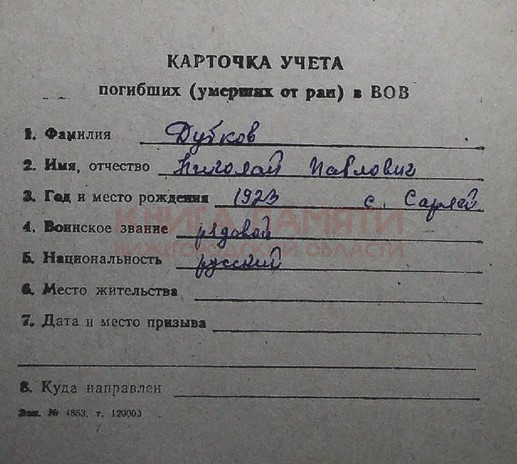 КАРТОЧКА УЧЕТА
погибших (умерших от ран) в ВОВ
1. Фамилия Дубков
2. Имя, отчество Николай Павлович
3. Год и место рождения 1923 с. Сарлей
КНИГА ПАМЯТИ
4. Воинское звание рядовой
НИЖЕГОРОДСКОЙ ОБЛАСТИ
5. Национальность русский
6. Место жительства
7. Дата и место призыва
8. Куда направлен
Зак. № 4853. т. 120000